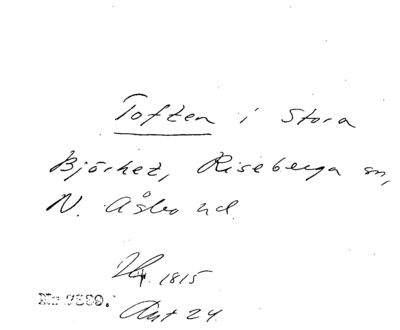 Toften i Stora
Björket, Riseberga sn,
N. Åsbo hd.
1815
Nr 9389.
Akt 24